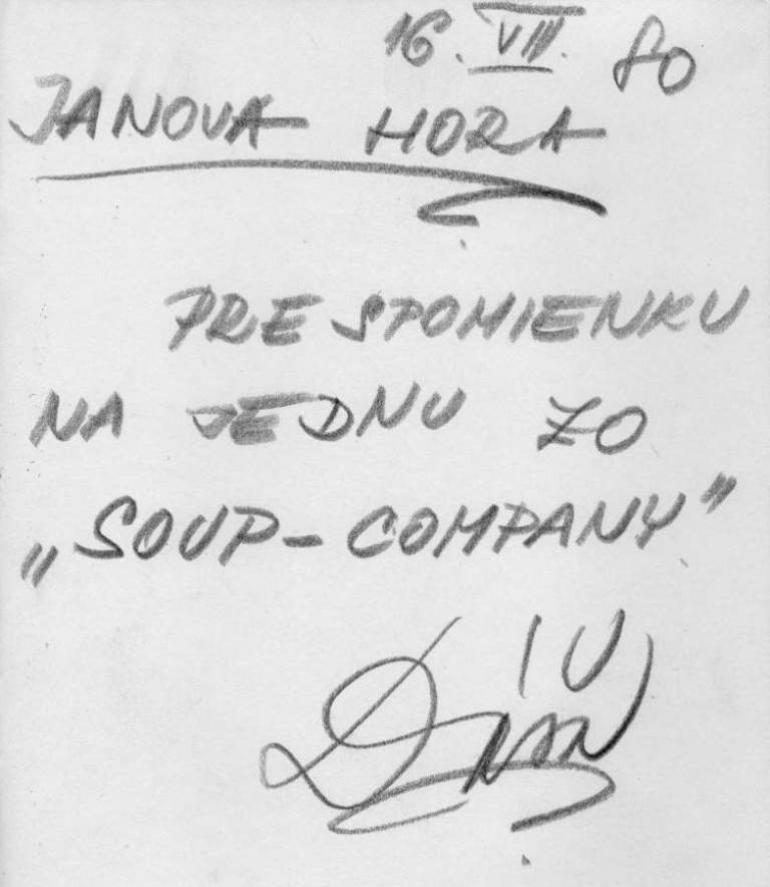 16. VII. 80
JANOVA HORA
PRE SPOMIENKU
NA JEDNU ZO
„SOUP-COMPANY"